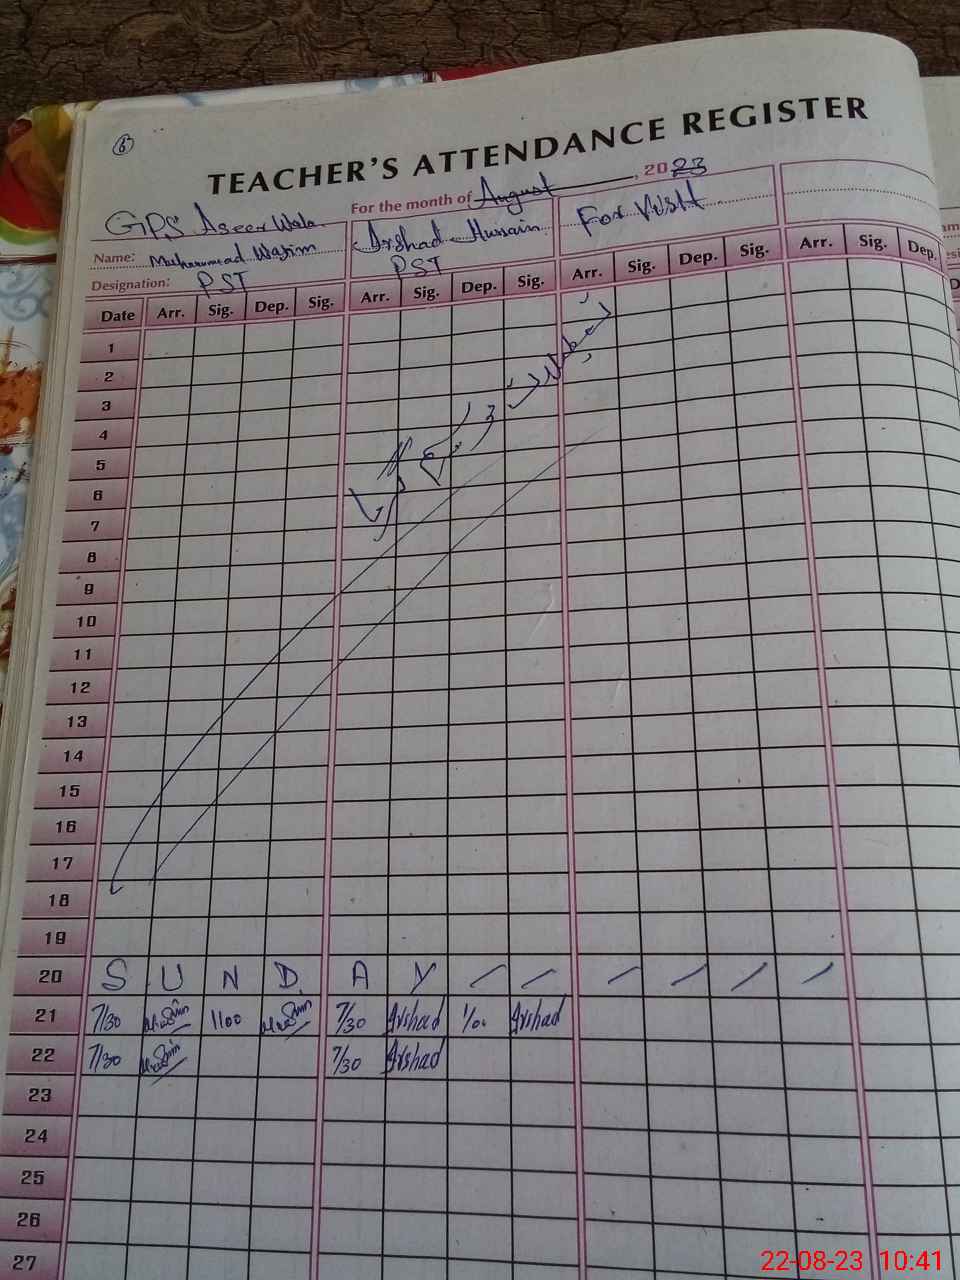 6
TEACHER'S ATTENDANCE REGISTER
For the month of August, 2023
GPS Aseer Wala
Name: Muhammad Wasim Arshad Hussain For Visit
Designation: PST PST
Date Arr. Sig. Dep. Sig. Arr. Sig. Dep. Sig. Arr. Sig. Dep. Sig. Arr. Sig. Dep.
1
2
3
4
5
6
7
8
9
10
11
12
13
14
15
16
17
18
19
20 S U N D A Y
21 7/30 1100 7/30 Arshad 1/00 Arshad
22 7/30 7/30 Arshad
23
24
25
26
27
22-08-23 10:41